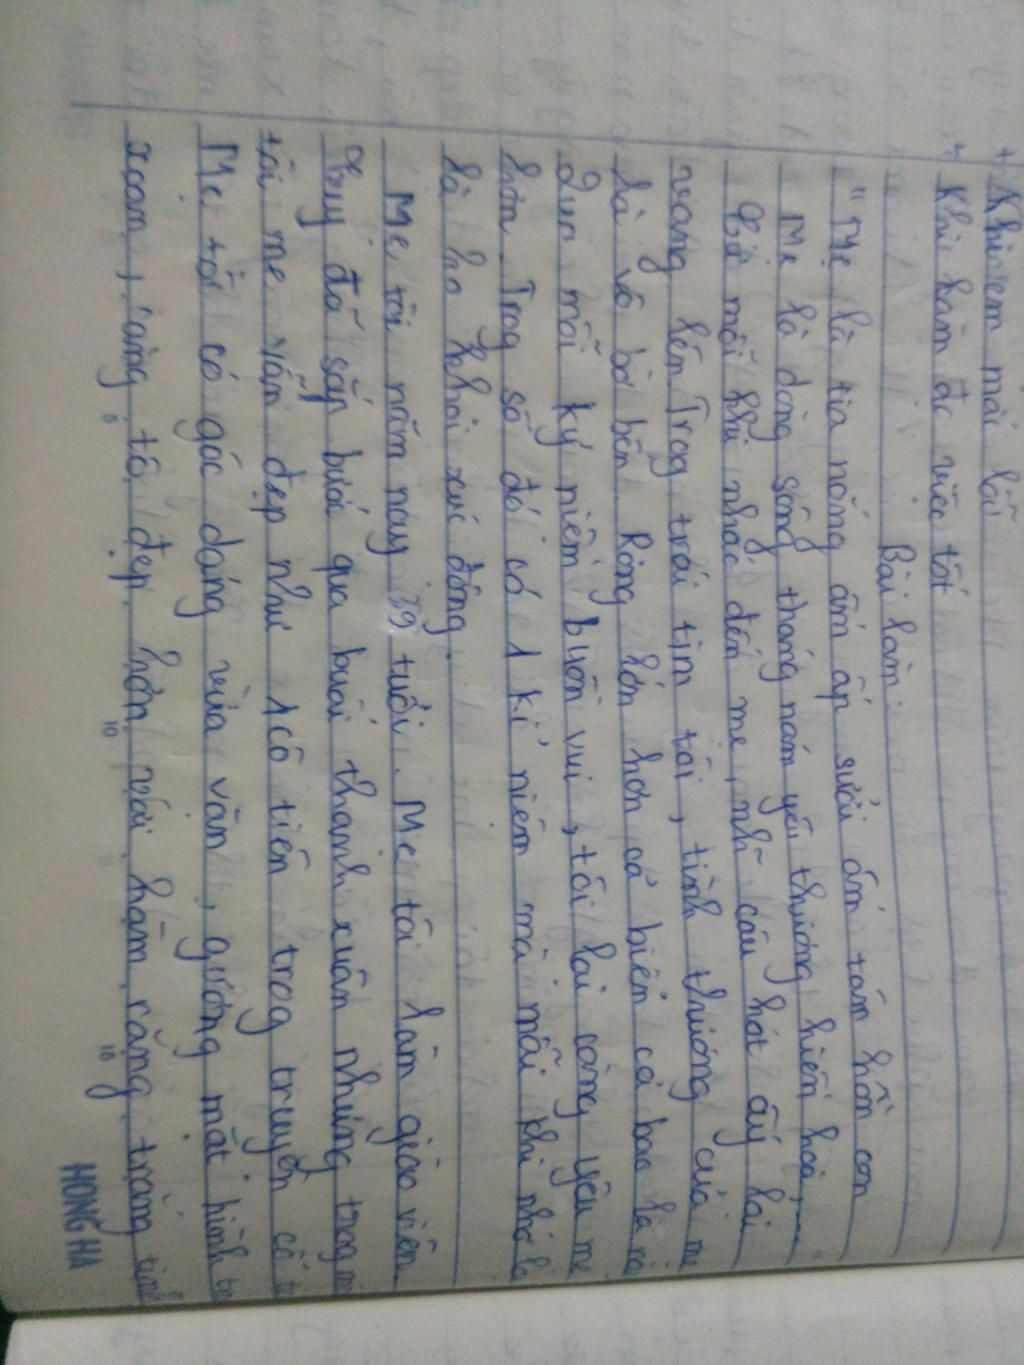 + Khi em mắc lỗi
+ Khi làm đc việc tốt
Bài làm:
"Mẹ là tia nắng ấm áp sưởi ấm tâm hồn con
Mẹ là dòng sông tháng năm yêu thương hiền hoà,..."
Cứ mỗi khi nhắc đến mẹ, nhữ câu hát ấy lại
vang lên. Trog trái tim tôi, tình thương của mẹ
là vô bờ bến. Rộng lớn hơn cả biển cả bao la
Qua mỗi ký niệm buồn vui, tôi lại càng yêu mẹ
hơn. Trog số đó có 1 kỉ niệm mà mỗi khi nhớ lại
là ko khỏi xúc động.
Mẹ tôi năm nay 39 tuổi. Mẹ tôi làm giáo viên.
Tuy đã sắp bước qua buổi thanh xuân nhưng trog
tôi mẹ vẫn đẹp như 1 cô tiên trog truyện cổ
Mẹ tôi có góc dáng vừa vặn, gương mặt hình
xoan, càng tô đẹp hơn với hàm răng trắng
HONG HA
5
10
15